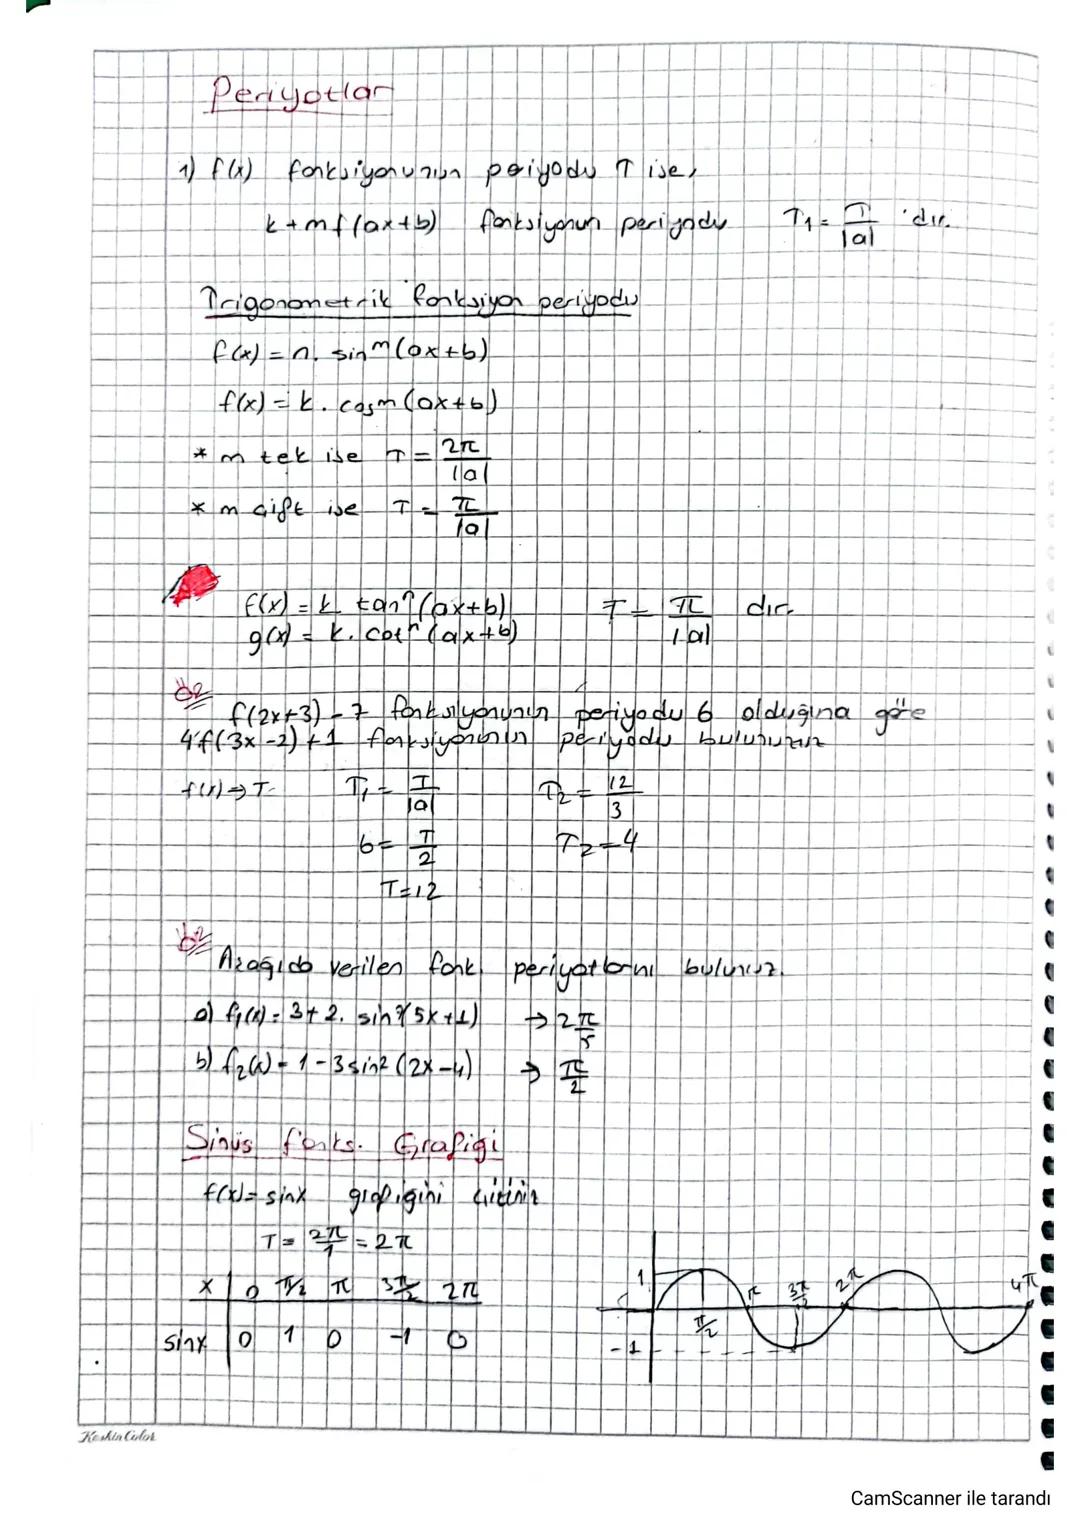 Periyotlar
1) f(x) fonksiyonunun periyodu T ise,
k + m f(ax+b) fonksiyonun periyodu T₁ = T/|a| 'dır.
Trigonometrik fonksiyon periyodu
f(x) = n. sinᵐ(ax+b)
f(x) = k. cosᵐ(ax+b)
* m tek ise T = 2π/|a|
* m çift ise T = π/|a|
f(x) = k tanⁿ(ax+b) T = π/|a| dır.
g(x) = k. cotⁿ(ax+b)
f(2x+3) - 7 fonksiyonunun periyodu 6 olduğuna göre
4.f(3x-2)+1 fonksiyonunun periyodu bulunuz
f(x) ⇒ T T₁ = T/|a| T₂ = 12/3
6 = T/2 T₂ = 4
T = 12
Aşağıda verilen fonk periyotlarını bulunuz.
a) f₁(x) = 3+2. sin (5x+1) → 2π/5
b) f₂(x) = 1-3sin²(2x-4) → π/2
Sinüs fonks. Grafiği
f(x) = sinx grafiğini çiziniz
T = 2π/1 = 2π
x 0 π/2 π 3π/2 2π
sinx 0 1 0 -1 0
1 π 3π/2 2π 4π
π/2
-1
Keskin Color
CamScanner ile tarandı